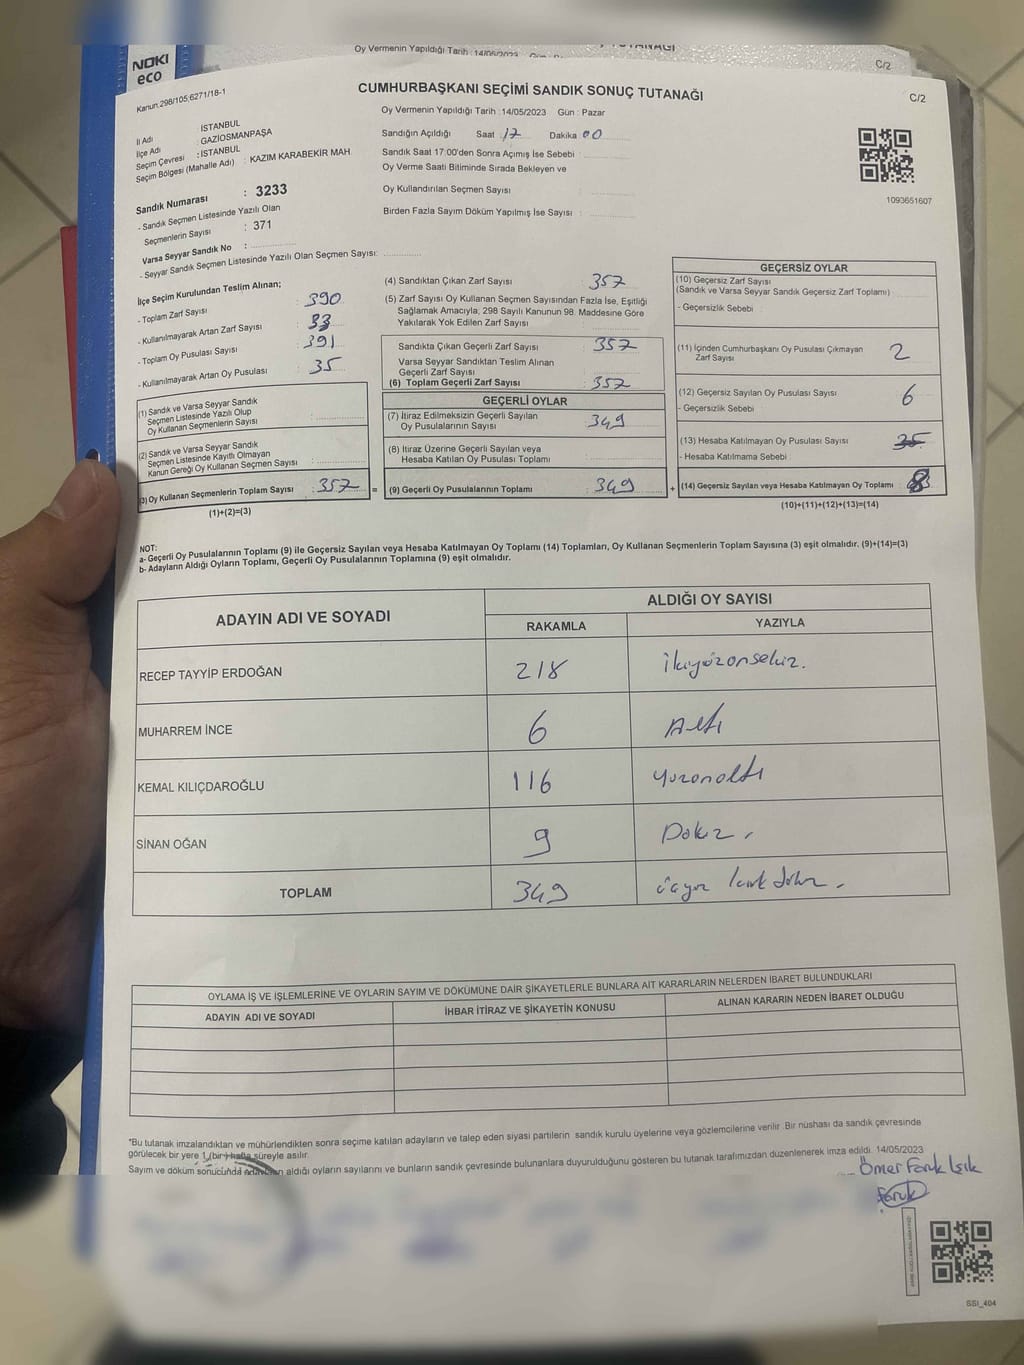 Oy Vermenin Yapıldığı Tarih : 14/05/2023
TUTANAĞI
C/2
NOKI
eco
Kanun.298/105;6271/18-1
CUMHURBAŞKANI SEÇİMİ SANDIK SONUÇ TUTANAĞI
C/2
Oy Vermenin Yapıldığı Tarih : 14/05/2023 Gün : Pazar
İl Adı : İSTANBUL
İlçe Adı : GAZİOSMANPAŞA
Seçim Çevresi : İSTANBUL
Seçim Bölgesi (Mahalle Adı) : KAZIM KARABEKİR MAH
Sandığın Açıldığı Saat : 17 Dakika 00
Sandık Saat 17:00'den Sonra Açımış İse Sebebi :
Oy Verme Saati Bitiminde Sırada Bekleyen ve
Oy Kullandırılan Seçmen Sayısı :
Birden Fazla Sayım Döküm Yapılmış İse Sayısı :
1093651607
Sandık Numarası : 3233
- Sandık Seçmen Listesinde Yazılı Olan
Seçmenlerin Sayısı : 371
Varsa Seyyar Sandık No :
- Seyyar Sandık Seçmen Listesinde Yazılı Olan Seçmen Sayısı:
İlçe Seçim Kurulundan Teslim Alınan;
- Toplam Zarf Sayısı : 390
- Kullanılmayarak Artan Zarf Sayısı : 33
- Toplam Oy Pusulası Sayısı : 391
- Kullanılmayarak Artan Oy Pusulası : 35
(1) Sandık ve Varsa Seyyar Sandık
Seçmen Listesinde Yazılı Olup
Oy Kullanan Seçmenlerin Sayısı :
(2) Sandık ve Varsa Seyyar Sandık
Seçmen Listesinde Kayıtlı Olmayan
Kanun Gereği Oy Kullanan Seçmen Sayısı :
(3) Oy Kullanan Seçmenlerin Toplam Sayısı : 357 =
(1)+(2)=(3)
(4) Sandıktan Çıkan Zarf Sayısı : 357
(5) Zarf Sayısı Oy Kullanan Seçmen Sayısından Fazla İse, Eşitliği
Sağlamak Amacıyla, 298 Sayılı Kanunun 98. Maddesine Göre
Yakılarak Yok Edilen Zarf Sayısı :
Sandıkta Çıkan Geçerli Zarf Sayısı : 357
Varsa Seyyar Sandıktan Teslim Alınan
Geçerli Zarf Sayısı :
(6) Toplam Geçerli Zarf Sayısı : 357
GEÇERLİ OYLAR
(7) İtiraz Edilmeksizin Geçerli Sayılan
Oy Pusulalarının Sayısı : 349
(8) İtiraz Üzerine Geçerli Sayılan veya
Hesaba Katılan Oy Pusulası Toplamı :
(9) Geçerli Oy Pusulalarının Toplamı : 349 +
GEÇERSİZ OYLAR
(10) Geçersiz Zarf Sayısı
(Sandık ve Varsa Seyyar Sandık Geçersiz Zarf Toplamı) :
- Geçersizlik Sebebi :
(11) İçinden Cumhurbaşkanı Oy Pusulası Çıkmayan
Zarf Sayısı : 2
(12) Geçersiz Sayılan Oy Pusulası Sayısı : 6
- Geçersizlik Sebebi :
(13) Hesaba Katılmayan Oy Pusulası Sayısı : 35
- Hesaba Katılmama Sebebi :
(14) Geçersiz Sayılan veya Hesaba Katılmayan Oy Toplamı : 8
(10)+(11)+(12)+(13)=(14)
NOT:
a- Geçerli Oy Pusulalarının Toplamı (9) ile Geçersiz Sayılan veya Hesaba Katılmayan Oy Toplamı (14) Toplamları, Oy Kullanan Seçmenlerin Toplam Sayısına (3) eşit olmalıdır. (9)+(14)=(3)
b- Adayların Aldığı Oyların Toplamı, Geçerli Oy Pusulalarının Toplamına (9) eşit olmalıdır.
ADAYIN ADI VE SOYADI
ALDIĞI OY SAYISI
RAKAMLA YAZIYLA
RECEP TAYYİP ERDOĞAN 218 ikiyüzonsekiz.
MUHARREM İNCE 6 Altı
KEMAL KILIÇDAROĞLU 116 yüzonaltı
SİNAN OĞAN 9 Dokuz.
TOPLAM 349 üçyüz kırk dokuz.
OYLAMA İŞ VE İŞLEMLERİNE VE OYLARIN SAYIM VE DÖKÜMÜNE DAİR ŞİKAYETLERLE BUNLARA AİT KARARLARIN NELERDEN İBARET BULUNDUKLARI
ADAYIN ADI VE SOYADI İHBAR İTİRAZ VE ŞİKAYETİN KONUSU ALINAN KARARIN NEDEN İBARET OLDUĞU
*Bu tutanak imzalandıktan ve mühürlendikten sonra seçime katılan adayların ve talep eden siyasi partilerin sandık kurulu üyelerine veya gözlemcilerine verilir. Bir nüshası da sandık çevresinde
görülecek bir yere 1 (bir) hafta süreyle asılır.
Sayım ve döküm sonucunda adayların aldığı oyların sayılarını ve bunların sandık çevresinde bulunanlara duyurulduğunu gösteren bu tutanak tarafımızdan düzenlenerek imza edildi. 14/05/2023
Ömer Faruk Işık
Faruk
SSI_404